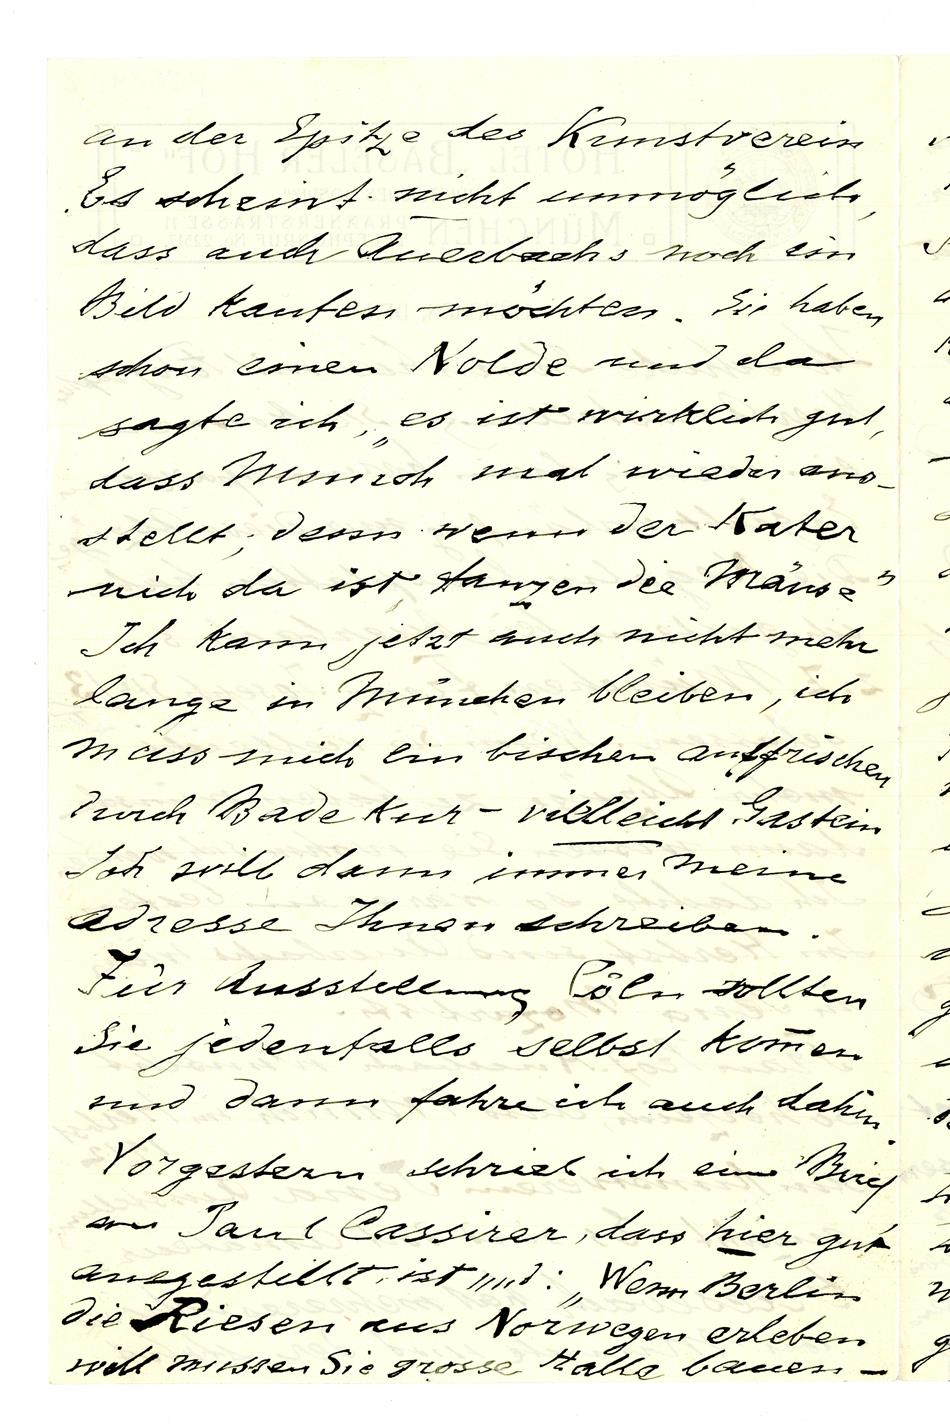 an der Spitze des Kunstverein
Es scheint nicht unmöglich,
dass auch Auerbachs noch ein
Bild kaufen möchten. Sie haben
schon einen Nolde und da
sagte ich, „es ist wirklich gut,
dass Munch mal wieder aus-
stellt; denn wenn der Kater
nich da ist, tanzen die Mäuse"
Ich kann jetzt auch nicht mehr
lange in München bleiben, ich
muss mich ein bischen auffrischen
durch Bade Kur – vielleicht Gastein
Ich will dann immer meine
Adresse Ihnen schreiben.
Für Ausstellung Cöln sollten
Sie jedenfalls selbst kom̄en
und dann fahre ich auch dahin.
Vorgestern schrieb ich ein Brief
an Paul Cassirer, dass hier gut
ausgestellt ist und: „Wenn Berlin
die Riesen aus Norwegen erleben
will mussen Sie grosse Halle bauen –
HOTEL „BASELER HOF"
MÜNCHEN